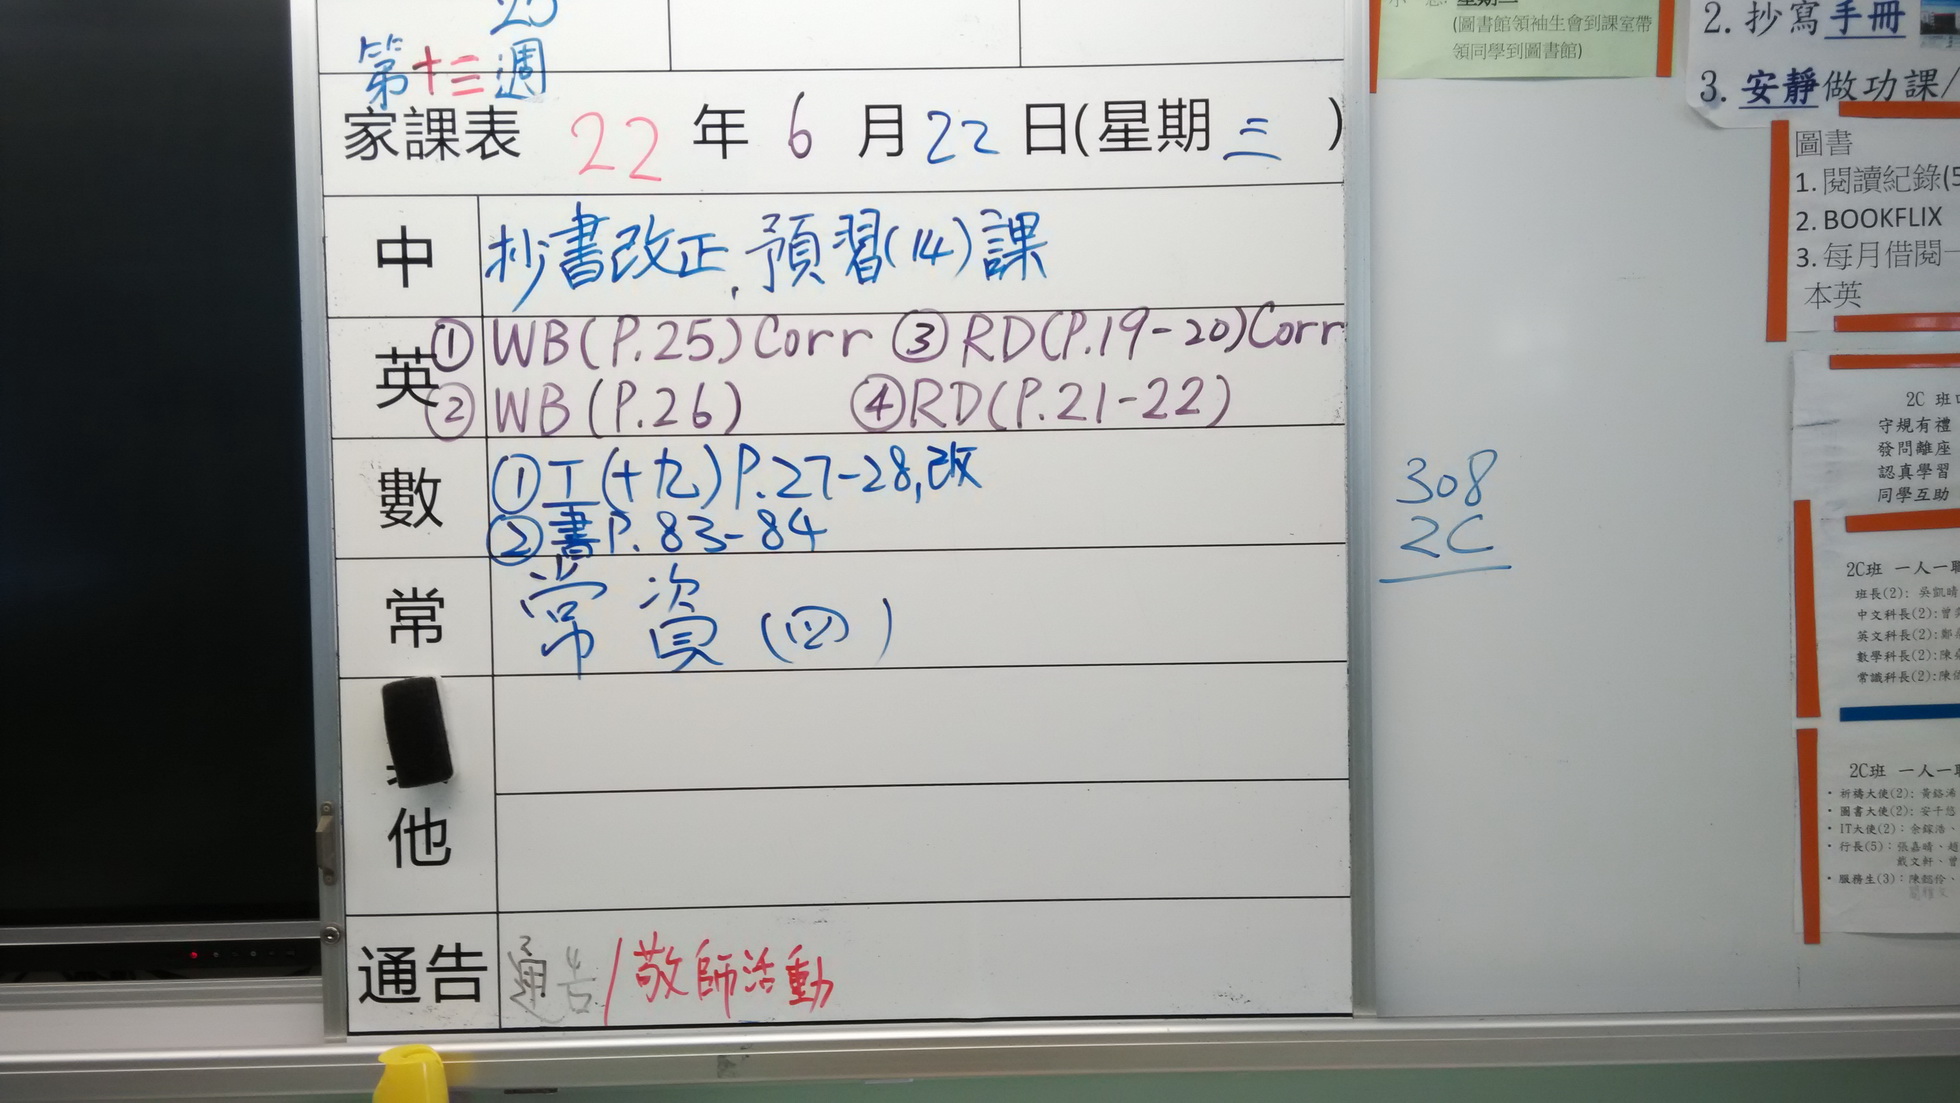 第十三週
家課表 22 年 6 月 22 日(星期三 )
中 抄書改正,預習(14)課
英 ① WB(P.25)Corr ③ RD(P.19-20)Corr
② WB(P.26) ④ RD(P.21-22)
數 ① 工(十九)P.27-28,改
② 書P.83-84
常 常資(四)
他
通告 通告/敬師活動
308
2C
(圖書館領袖生會到課室帶
領同學到圖書館)
2. 抄寫手冊
3. 安靜做功課/
圖書
1. 閱讀紀錄(5
2. BOOKFLIX
3. 每月借閱一
本英
2C 班
守規有禮
發問離座
認真學習
同學互助
2C班 一人一職
班長(2): 吳凱晴
中文科長(2):曾
英文科長(2):鄭
數學科長(2):陳
常識科長(2):陳
2C班 一人一職
• 祈禱大使(2): 黃
• 圖書大使(2): 安千悠
• IT大使(2): 余
• 行長(5):張嘉晴、趙
戴文軒、曾
• 服務生(3):陳懿伶、